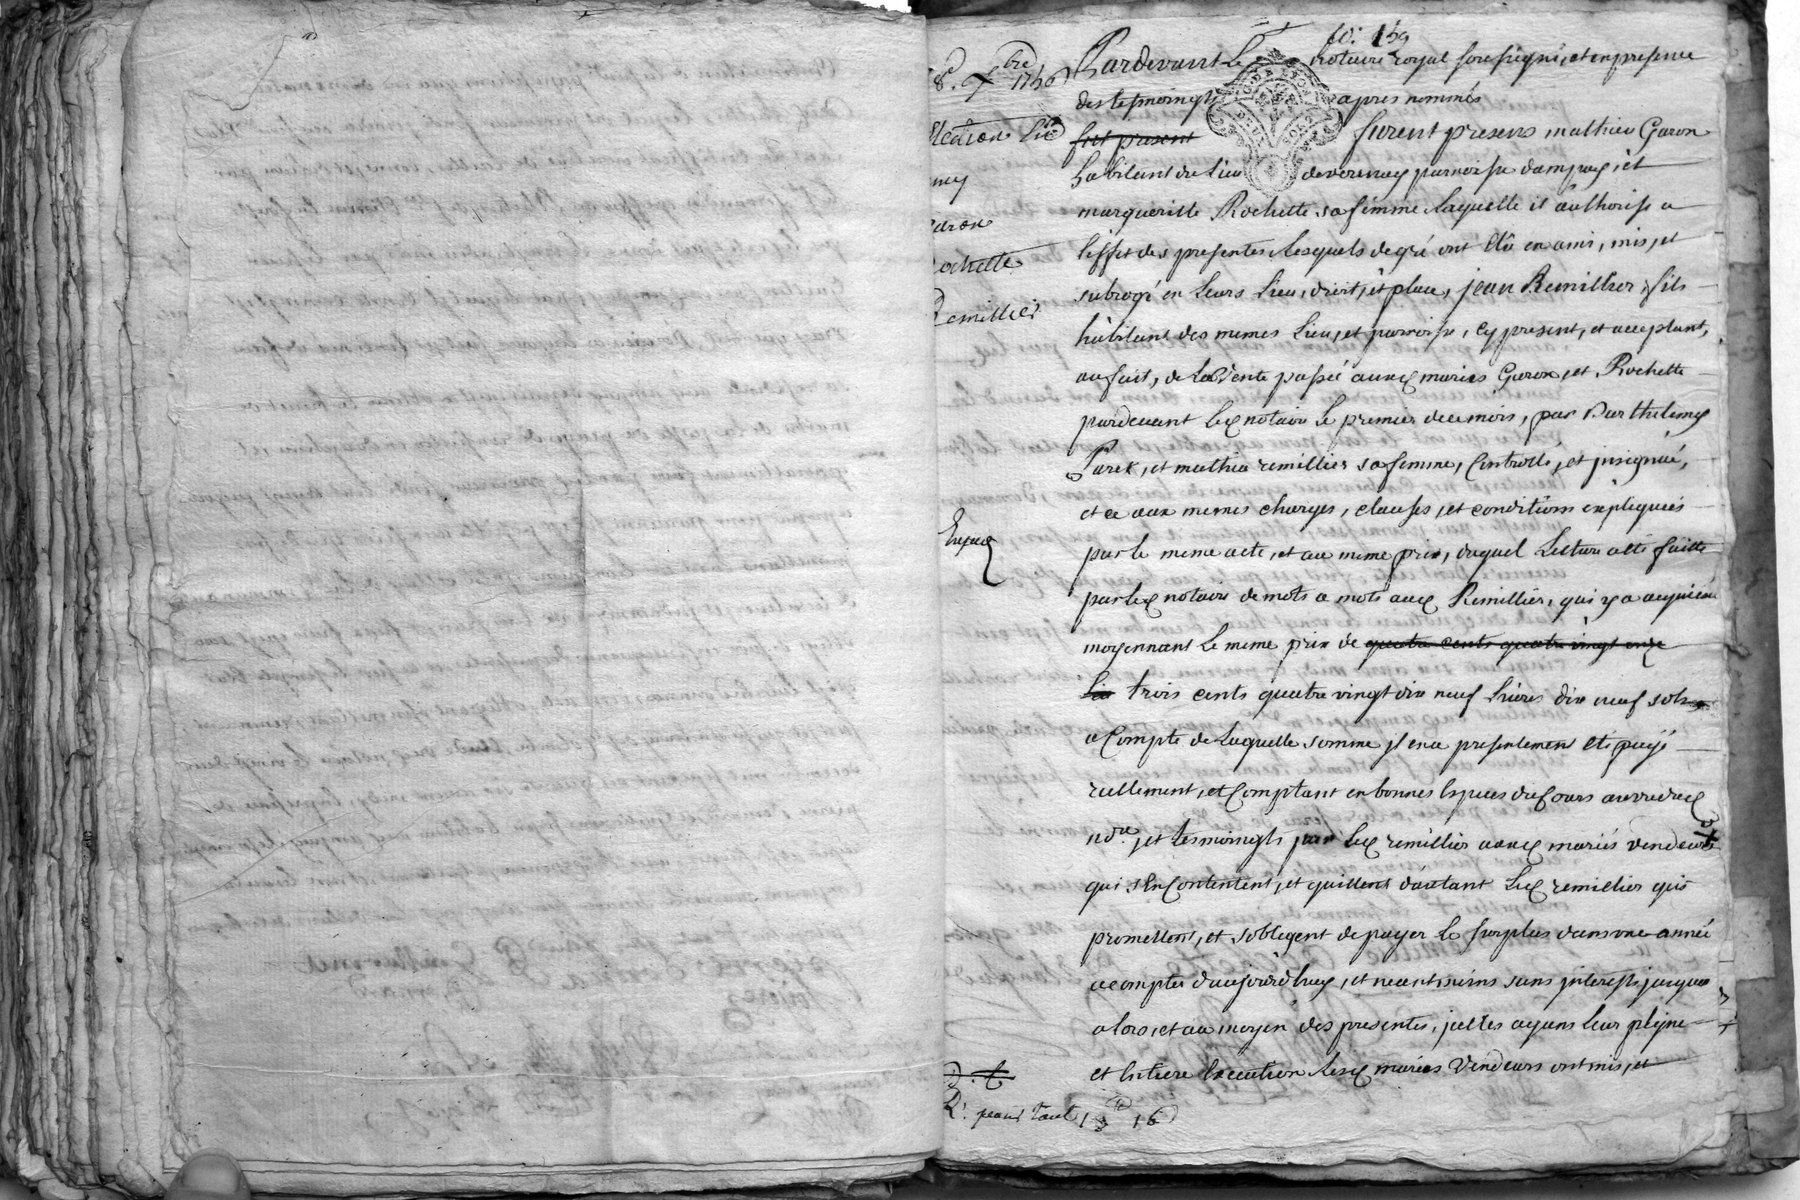 fo: 159
8e xbre 1756
Pardevant Le notaire royal soussigné, et en presence
des tesmoingts apres nommés
fut present furent presens mathieu Garon
habitant du Lieu de vernay parroisse dampuy, et
margueritte Rochette sa femme Laquelle il authorise a
leffet des presentes, lesquels de gré ont Elû en ami, mis, et
subrogé en Leurs Lieu, droit, et place, jean Remillier fils
habitant des memes Lieu, et parroisse, cy present, et acceptant,
au fait, de la Vente passée auxd mariés Garon, et Rochette
pardevant Led notaire Le premier de ce mois, par Barthelemy
Paret, et mathie remillier sa femme, Controllé, et jnsignué,
et ce aux memes charges, clauses, et conditions expliquées
par le meme acte, et au meme prix, duquel Lecture a eté faitte
par led notaire de mots a mots aud Remillier, qui y a acquiecé
moyennant Le meme prix de quatre cents quatre vingt onze
Liv trois cents quatre vingt dix neuf Livres dix neuf sols
a Compte de Laquelle somme jl en a presentement eté payé
reellement, et Comptant en bonnes Especes du Cours au vu dud
nore, et tesmoingts par Led remillier auxd mariés vendeurs
qui s'En Contentent, et quittent d'autant Led remillier qui
promettent, et s'obligent de payer Le surplus dans une année
a compter daujourd'huy, et neantmoins sans jnterests jusques
alors, et au moyen des presentes, jcelles ayans leur pleine
et Entiere Execution Lesd mariés Vendeurs ont mis, et
Election
my
Garon
Rochette
Remillier
Exped
R. pour tout 13 16